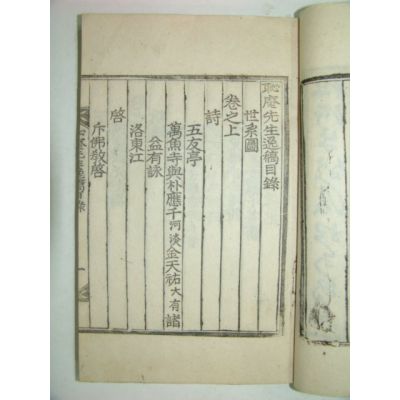 恥庵先生逸稿目錄
世系圖
卷之上
詩
五友亭
萬魚寺與朴應千河淡金天祐大有諸
益有詠
洛東江
啓
斥佛教啓